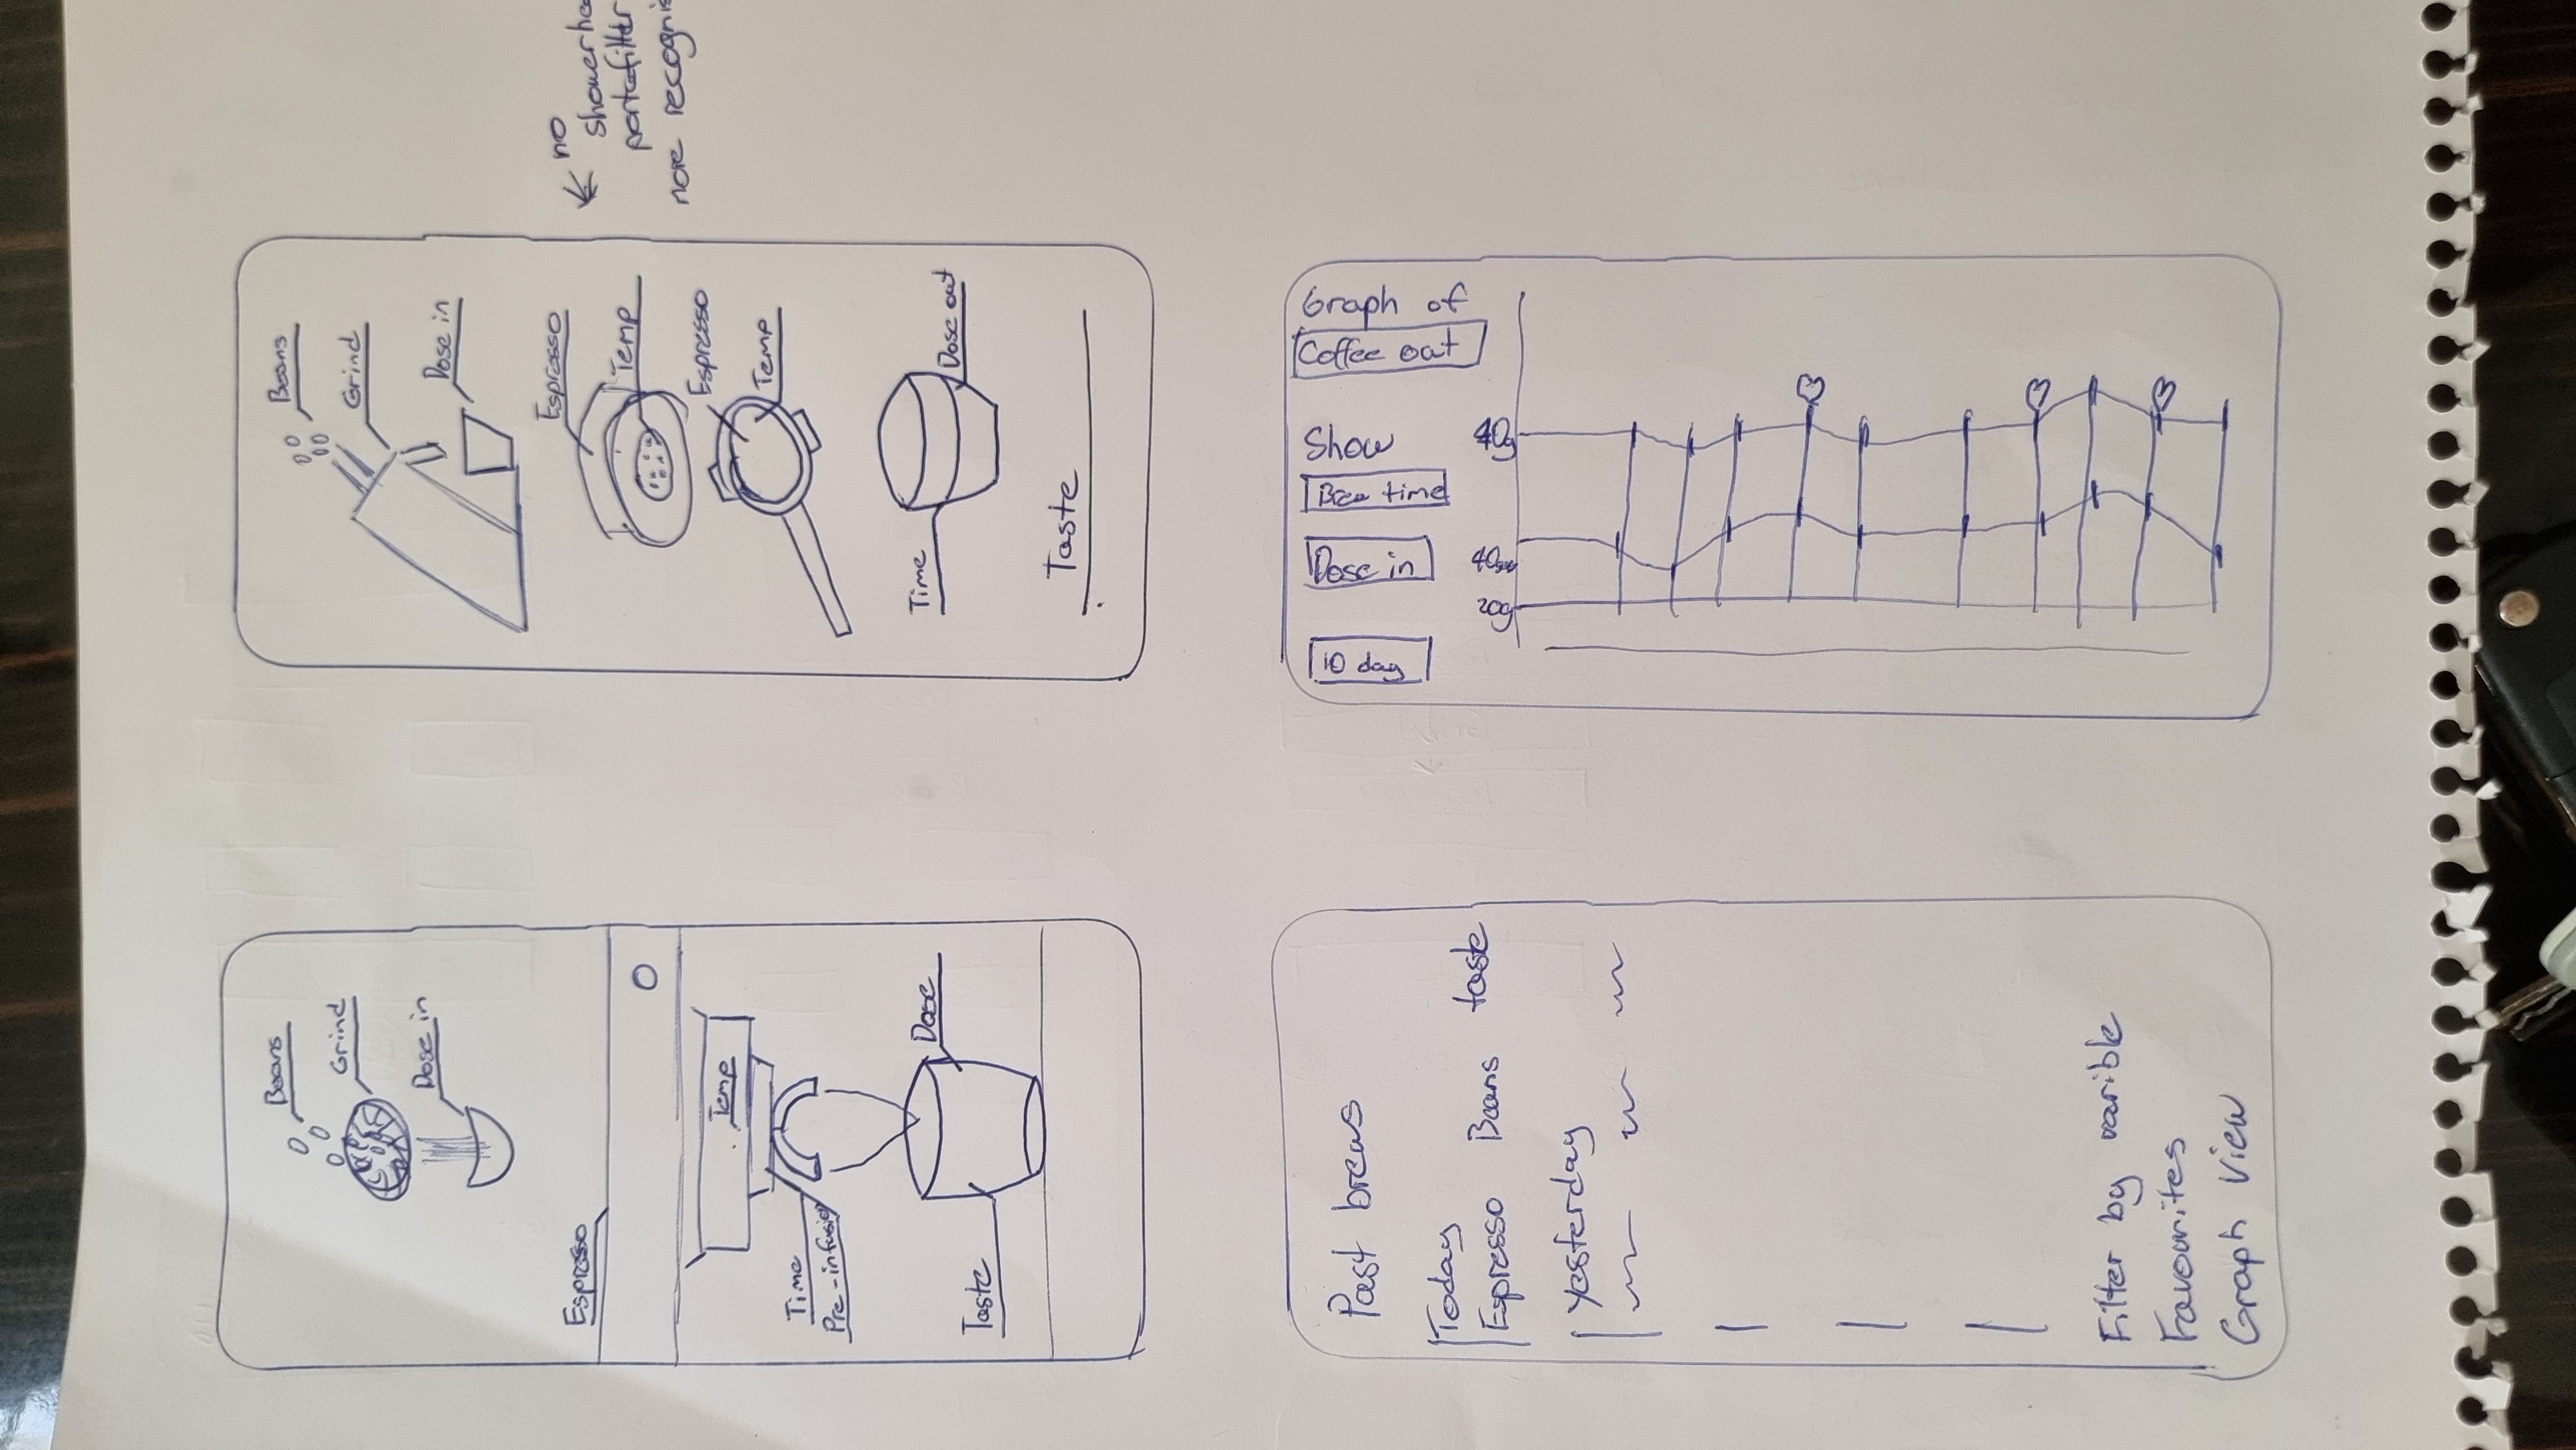 Beans
Grind
Dose in
Espresso
Temp
Time
Pre-infusion
Dose
Taste
Beans
Grind
Dose in
Espresso
Temp
Espresso
Temp
Time
Dose out
Taste
no
portafilter
more
Past brews
Today
Espresso Beans taste
yesterday
Filter by varible
Favourites
Graph View
Graph of
Coffee out
Show
Brew time
Dose in
10 day
40g
20g